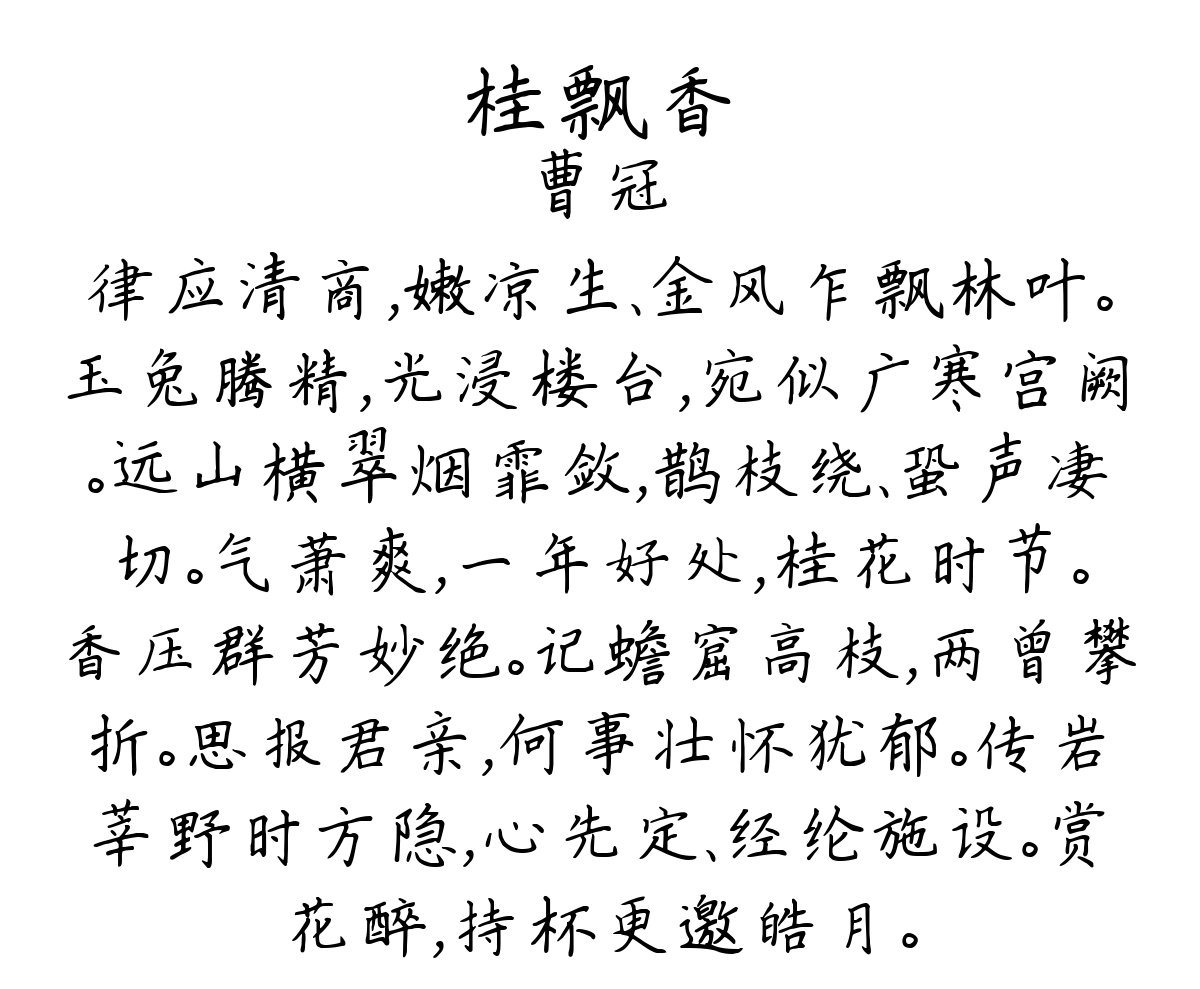 桂飘香
曹冠
律应清商,嫩凉生、金风乍飘林叶。
玉兔腾精,光浸楼台,宛似广寒宫阙
。远山横翠烟霏敛,鹊枝绕、蛩声凄
切。气萧爽,一年好处,桂花时节。
香压群芳妙绝。记蟾窟高枝,两曾攀
折。思报君亲,何事壮怀犹郁。传岩
莘野时方隐,心先定、经纶施设。赏
花醉,持杯更邀皓月。